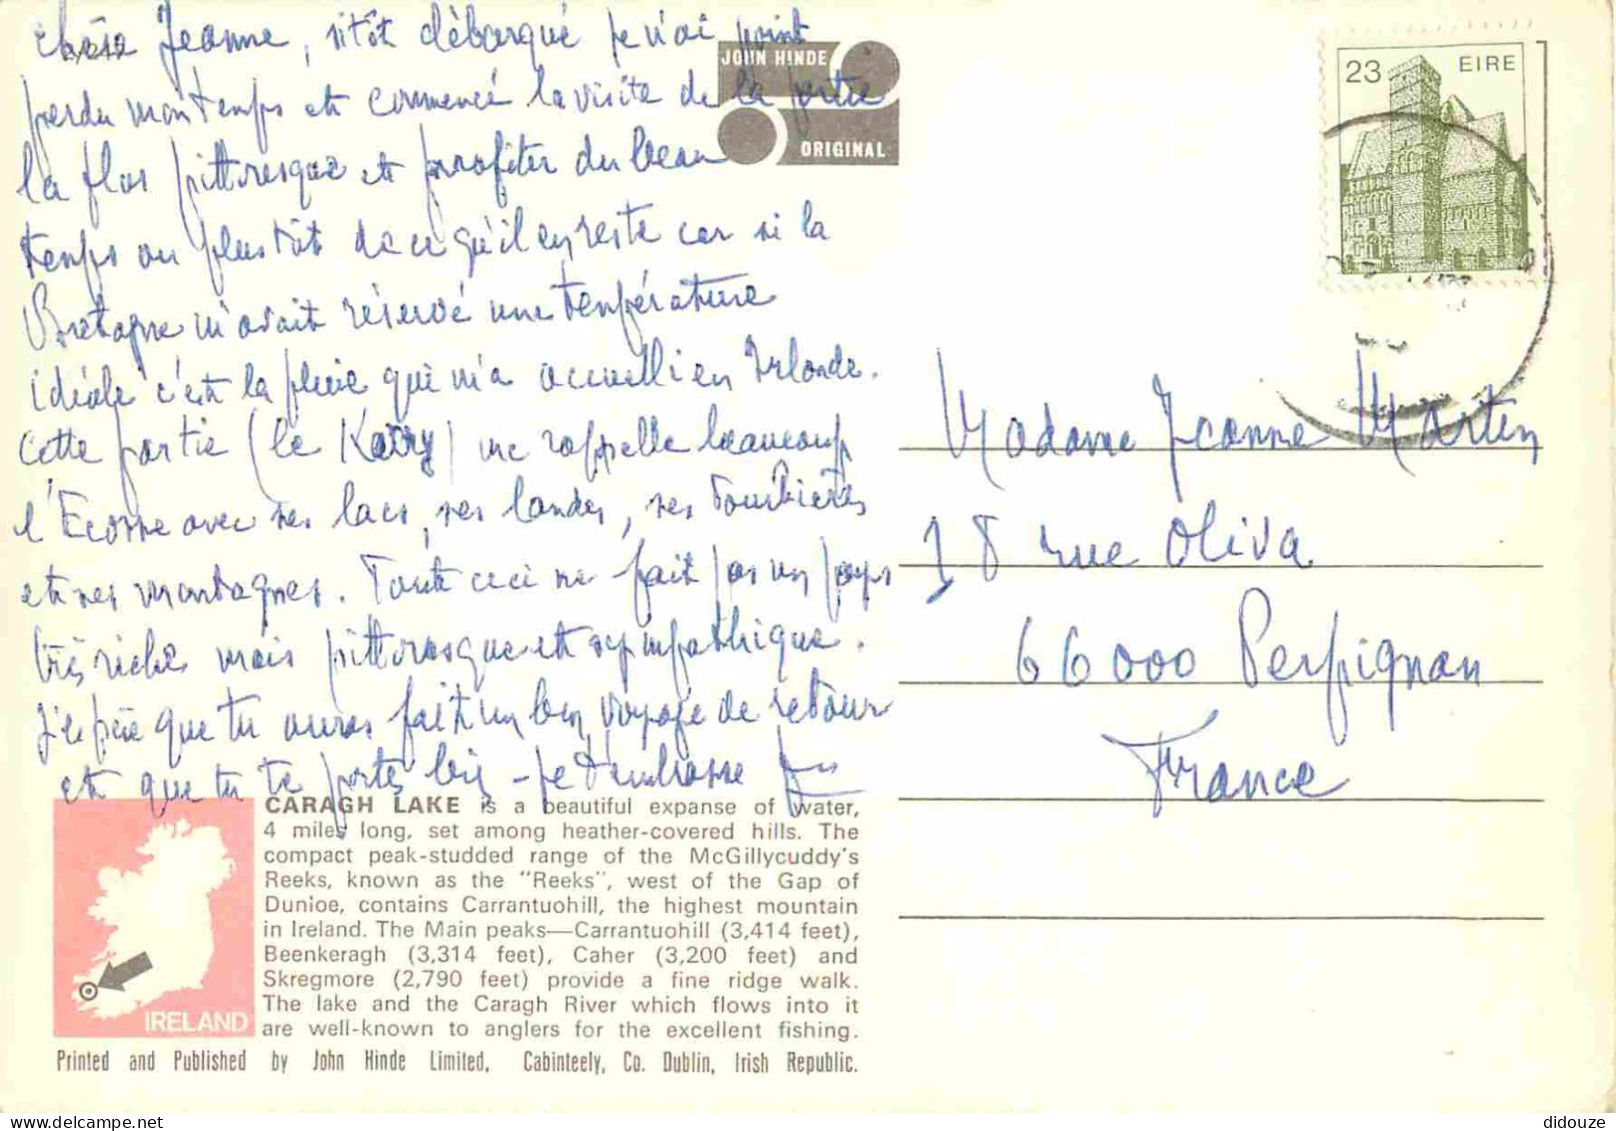 Chère Jeanne, sitôt débarqué je n'ai point
perdu mon temps et commencé la visite de la partie
la plus pittoresque et profiter du beau
temps ou plustôt de ce qu'il en reste car si la
Bretagne m'avait réservé une température
idéale c'est la pluie qui m'a accueilli en Irlande.
Cette partie (le Kerry) me rappelle beaucoup
l'Ecosse avec ses lacs, ses landes, ses tourbières
et ses montagnes. Toute ceci ne fait pas un pays
très riche mais pittoresque et sympathique.
J'espère que tu auras fait un bon voyage de retour
et que tu te portes bien - je t'embrasse
JOHN HINDE
ORIGINAL
23 EIRE
Madame Jeanne Martin
18 rue Oliva
66000 Perpignan
France
CARAGH LAKE is a beautiful expanse of water,
4 miles long, set among heather-covered hills. The
compact peak-studded range of the McGillycuddy's
Reeks, known as the "Reeks", west of the Gap of
Dunloe, contains Carrantuohill, the highest mountain
in Ireland. The Main peaks—Carrantuohill (3,414 feet),
Beenkeragh (3,314 feet), Caher (3,200 feet) and
Skregmore (2,790 feet) provide a fine ridge walk.
The lake and the Caragh River which flows into it
are well-known to anglers for the excellent fishing.
IRELAND
Printed and Published by John Hinde Limited, Cabinteely, Co. Dublin, Irish Republic.
delcampe.net
didouze